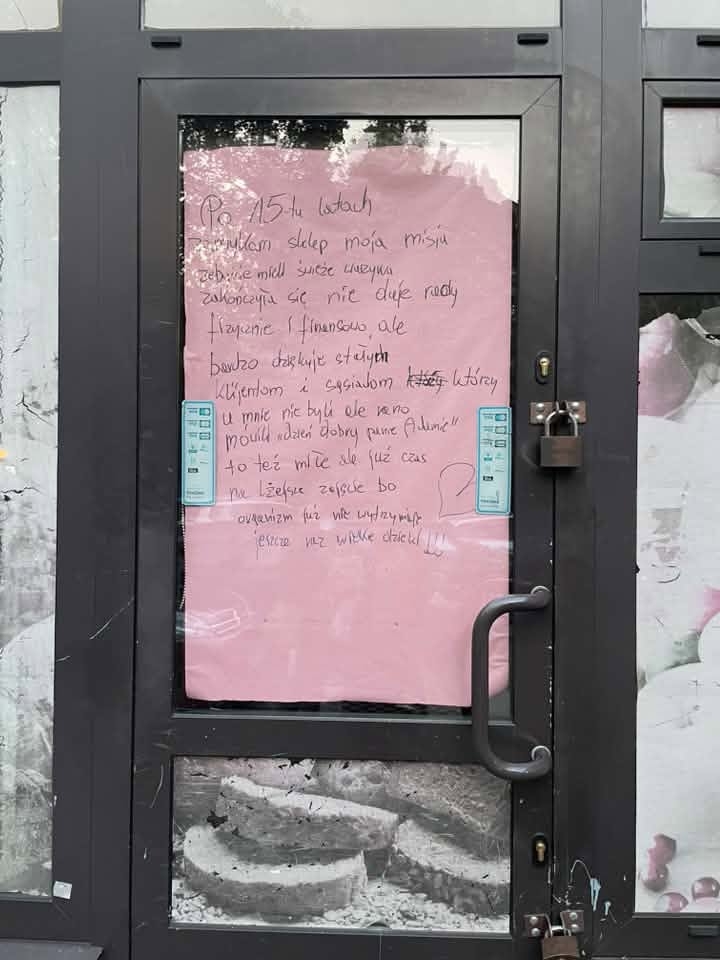 Po 15-tu latach
zamykam sklep moja misja
żebyście mieli świeże warzywa
zakończyła się nie daje rady
fizycznie i finansowo, ale
bardzo dziękuje stałych
klijentom i sąsiadom którzy
u mnie nie byli ale rano
mówili „dzień dobry panie Adamie"
to też miłe ale już czas
na lżejsze zajęcie bo
organizm już nie wytrzymuje
jeszcze raz wielkie dzięki !!!